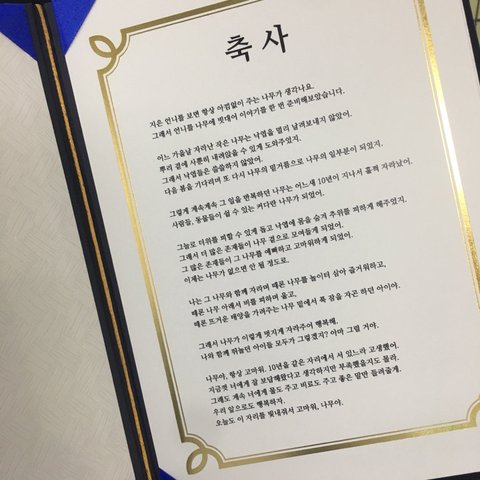 축사
지은 언니를 보면 항상 아낌없이 주는 나무가 생각나요.
그래서 언니를 나무에 빗대어 이야기를 한 번 준비해보았습니다.
어느 가을날 자라난 작은 나무는 낙엽을 멀리 날려보내지 않았어.
뿌리 곁에 사뿐히 내려앉을 수 있게 도와주었지.
그래서 낙엽들은 쓸쓸하지 않았어.
다음 봄을 기다리며 또 다시 나무의 밑거름으로 나무의 일부분이 되었지.
그렇게 계속계속 그 일을 반복하던 나무는 어느새 10년이 지나서 훌쩍 자라났어.
사람들, 동물들이 쉴 수 있는 커다란 나무가 되었어.
그늘로 더위를 피할 수 있게 돕고 낙엽에 몸을 숨겨 추위를 피하게 해주었지.
그래서 더 많은 존재들이 나무 곁으로 모여들게 되었어.
그 많은 존재들이 그 나무를 예뻐하고 고마워하게 되었어.
이제는 나무가 없으면 안 될 정도로.
나는 그 나무와 함께 자라며 때론 나무를 놀이터 삼아 즐거워하고,
때론 나무 아래서 비를 피하며 울고,
때론 뜨거운 태양을 가려주는 나무 밑에서 푹 잠을 자곤 하던 아이야.
그래서 나무가 이렇게 멋지게 자라주어 행복해.
나와 함께 뛰놀던 아이들 모두가 그렇겠지? 아마 그럴 거야.
나무야, 항상 고마워. 10년을 같은 자리에서 서 있느라 고생했어.
지금껏 너에게 잘 보답해왔다고 생각하지만 부족했을지도 몰라.
그래도 계속 너에게 물도 주고 비료도 주고 좋은 말만 들려줄게.
우리 앞으로도 행복하자.
오늘도 이 자리를 빛내줘서 고마워, 나무야.